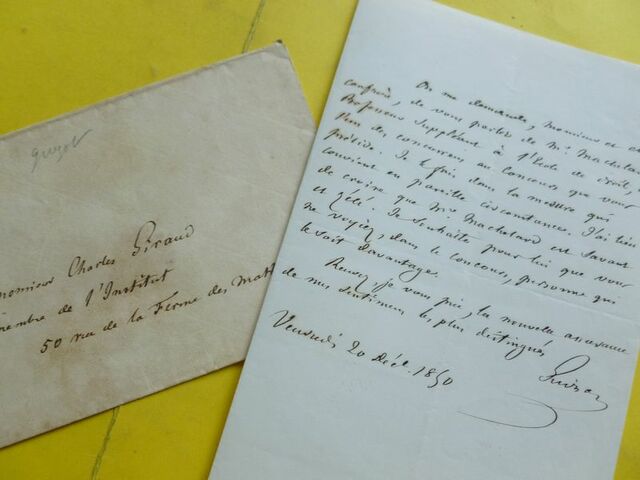 guizot
Monsieur Charles Giraud
membre de l'Institut
50 rue de la Ferme des Math
On me demande, monsieur et
confrère, de vous parler de Mr Machelard
Professeur suppléant à l'école de droit,
l'un des concurrens au concours que vous
présidez. Je le fais dans la mesure qui
convient en pareille circonstance. J'ai lieu
de croire que Mr Machelard est savant
et zélé. Je souhaite pour lui que vous
ne voyiez, dans le concours, personne qui
le soit davantage.
Recevez, je vous prie, la nouvelle assurance
de mes sentimens les plus distingués
Guizot
Vendredi 20 Déc. 1850